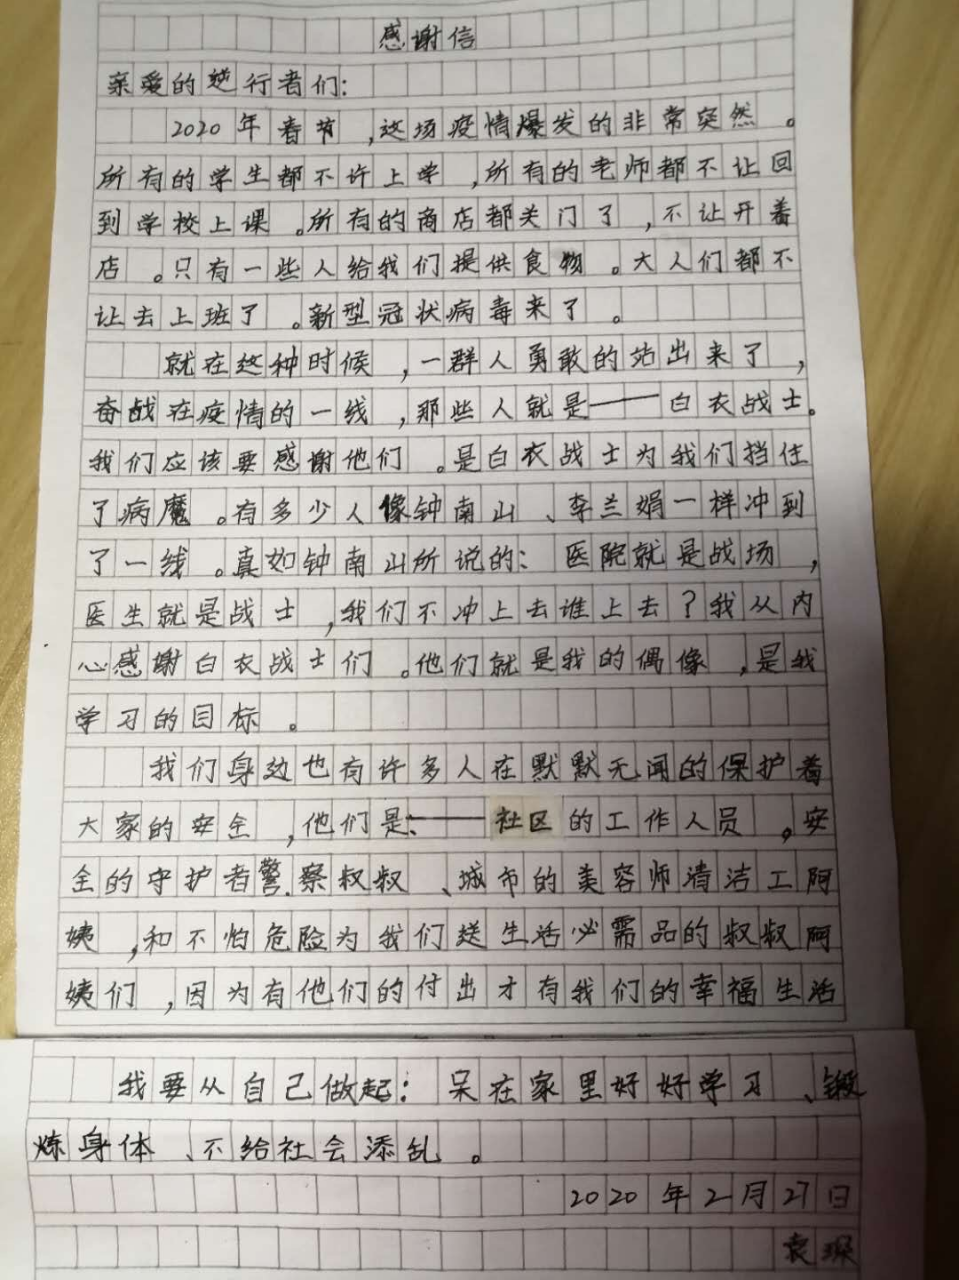 感谢信
亲爱的逆行者们:
2020年春节,这场疫情爆发的非常突然。
所有的学生都不许上学,所有的老师都不让回
到学校上课。所有的商店都关门了,不让开着
店。只有一些人给我们提供食物。大人们都不
让去上班了。新型冠状病毒来了。
就在这种时候,一群人勇敢的站出来了,
奋战在疫情的一线,那些人就是——白衣战士。
我们应该要感谢他们。是白衣战士为我们挡住
了病魔。有多少人像钟南山、李兰娟一样冲到
了一线。真如钟南山所说的:医院就是战场,
医生就是战士,我们不冲上去谁上去?我从内
心感谢白衣战士们。他们就是我的偶像,是我
学习的目标。
我们身边也有许多人在默默无闻的保护着
大家的安全,他们是——社区的工作人员。安
全的守护者警察叔叔、城市的美容师清洁工阿
姨,和不怕危险为我们送生活必需品的叔叔阿
姨们,因为有他们的付出才有我们的幸福生活
我要从自己做起:呆在家里好好学习、锻
炼身体、不给社会添乱。
2020年2月27日
袁琛